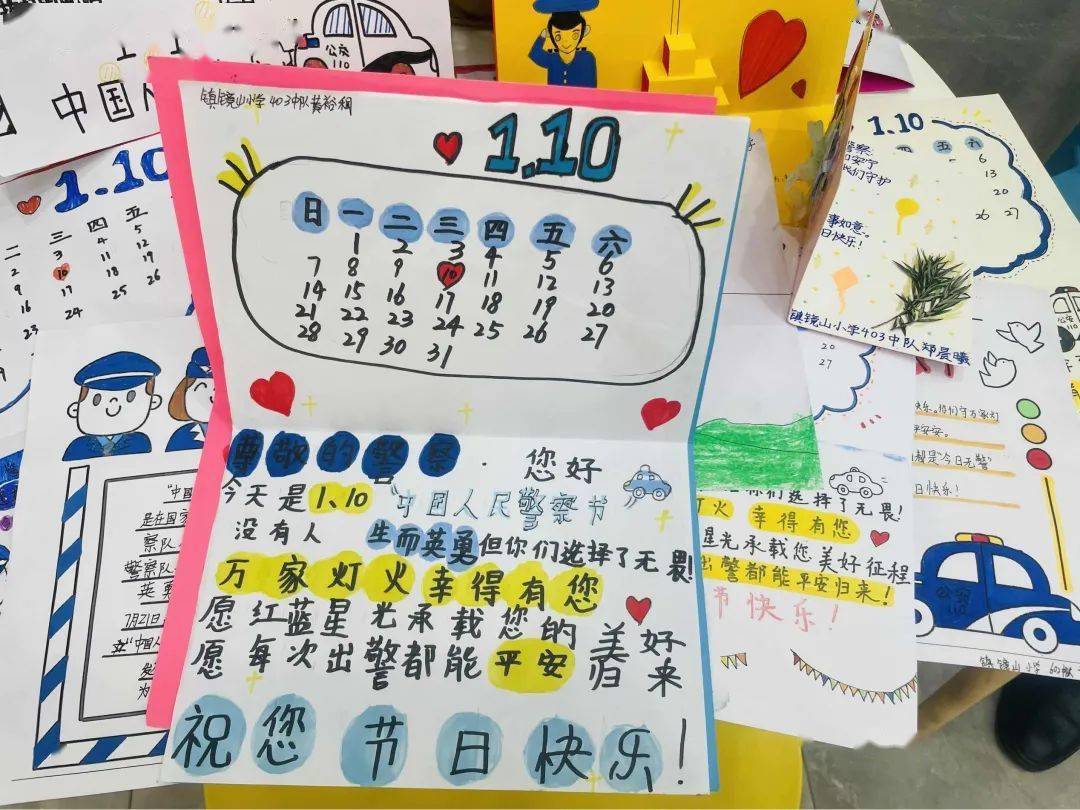 镇镜山小学403中队黄裕栩
1.10
日 一 二 三 四 五 六
1 2 3 4 5 6
7 8 9 10 11 12 13
14 15 16 17 18 19 20
21 22 23 24 25 26 27
28 29 30 31
尊敬的警察. 您好
今天是1.10"中国人民警察节
没有人 生而英勇但你们选择了无畏!
万家灯火幸得有您
愿红蓝星光承载您的美好
愿每次出警都能平安归来
祝您节日快乐!
公安
110
中国人
1.10
二 三 四 五
3 4 5
9 10 11 12
16 17 18 19
23 24 25 26
"中国
是在国家
察队
警察队
英勇
7月21日
立"中国人
发
为
1.10
五 六
6
13
20
26 27
警察
和安宁
我们守护
事如意。
日快乐!
镇镜山小学403中队郑晨曦
20
27
你们选择了无畏!
灯火 幸得有您
星光承载您美好征程
出警都能平安归来!
节快乐!
公安
快乐。你们守万家灯
平安安。
是"今日无警"
日快乐!
公安
110
镇镜山小学